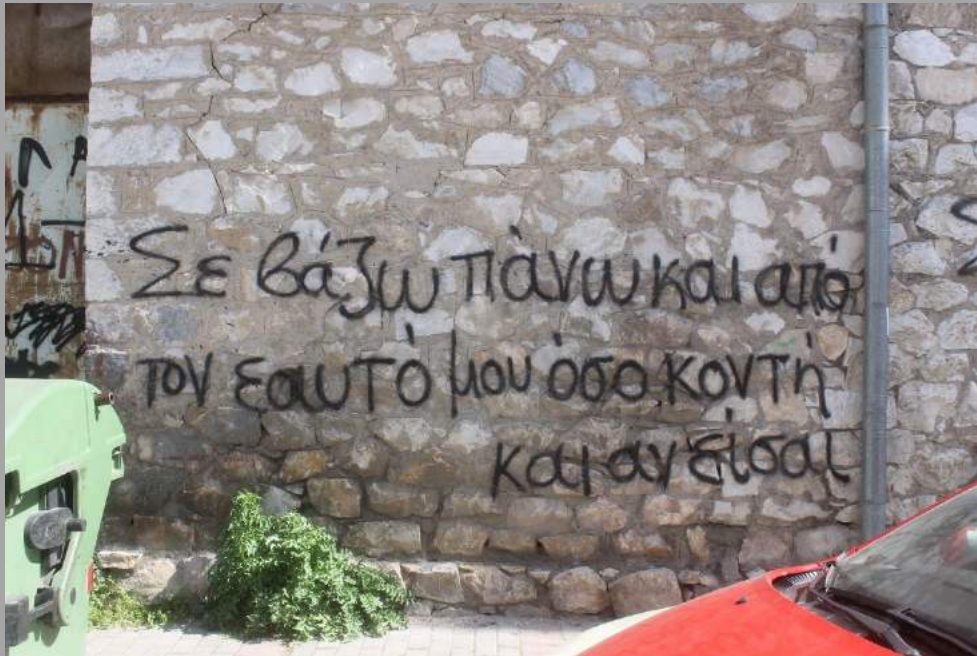 Σε βάζω πάνω και από
τον εαυτό μου όσο κοντή
και αν είσαι